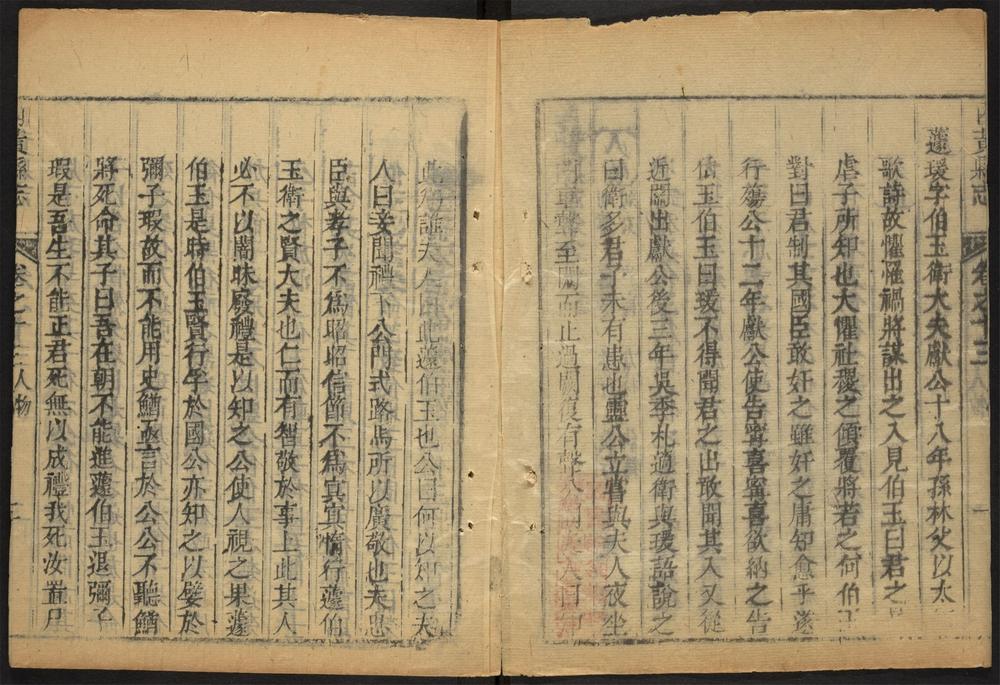 黃縣志
卷之十三
蘧瑗字伯玉衛大夫獻公十八年孫林父以太
歌詩故懼罹禍將謀出之入見伯玉曰君之
虐子所知也大懼社稷之傾覆將若之何伯
對曰君制其國臣敢奸之雖奸之庸知愈乎遂
行殤公十二年獻公使告甯喜甯喜欲納之告
伯玉伯玉曰瑗不得聞君之出敢聞其入又從
近關出獻公後三年吳季札適衛與瑗語說之
曰衛多君子未有患也靈公立嘗與夫人夜坐
車聲至闕而止過闕復有聲公問夫人曰
此為誰夫人曰此蘧伯玉也公曰何以知之夫
人曰妾聞禮下公門式路馬所以廣敬也夫忠
臣與孝子不爲昭昭信節不爲冥冥惰行蘧伯
玉衛之賢大夫也仁而有智敬於事上此其人
必不以闇昧廢禮是以知之公使人視之果蘧
伯玉是時伯玉賢行孚於國公亦知之以嬖於
彌子瑕故而不能用史鰌亟言於公公不聽鰌
將死命其子曰吾在朝不能進蘧伯玉退彌子
瑕是吾生不能正君死無以成禮我死汝置尸
黃縣志
卷之十三
人物